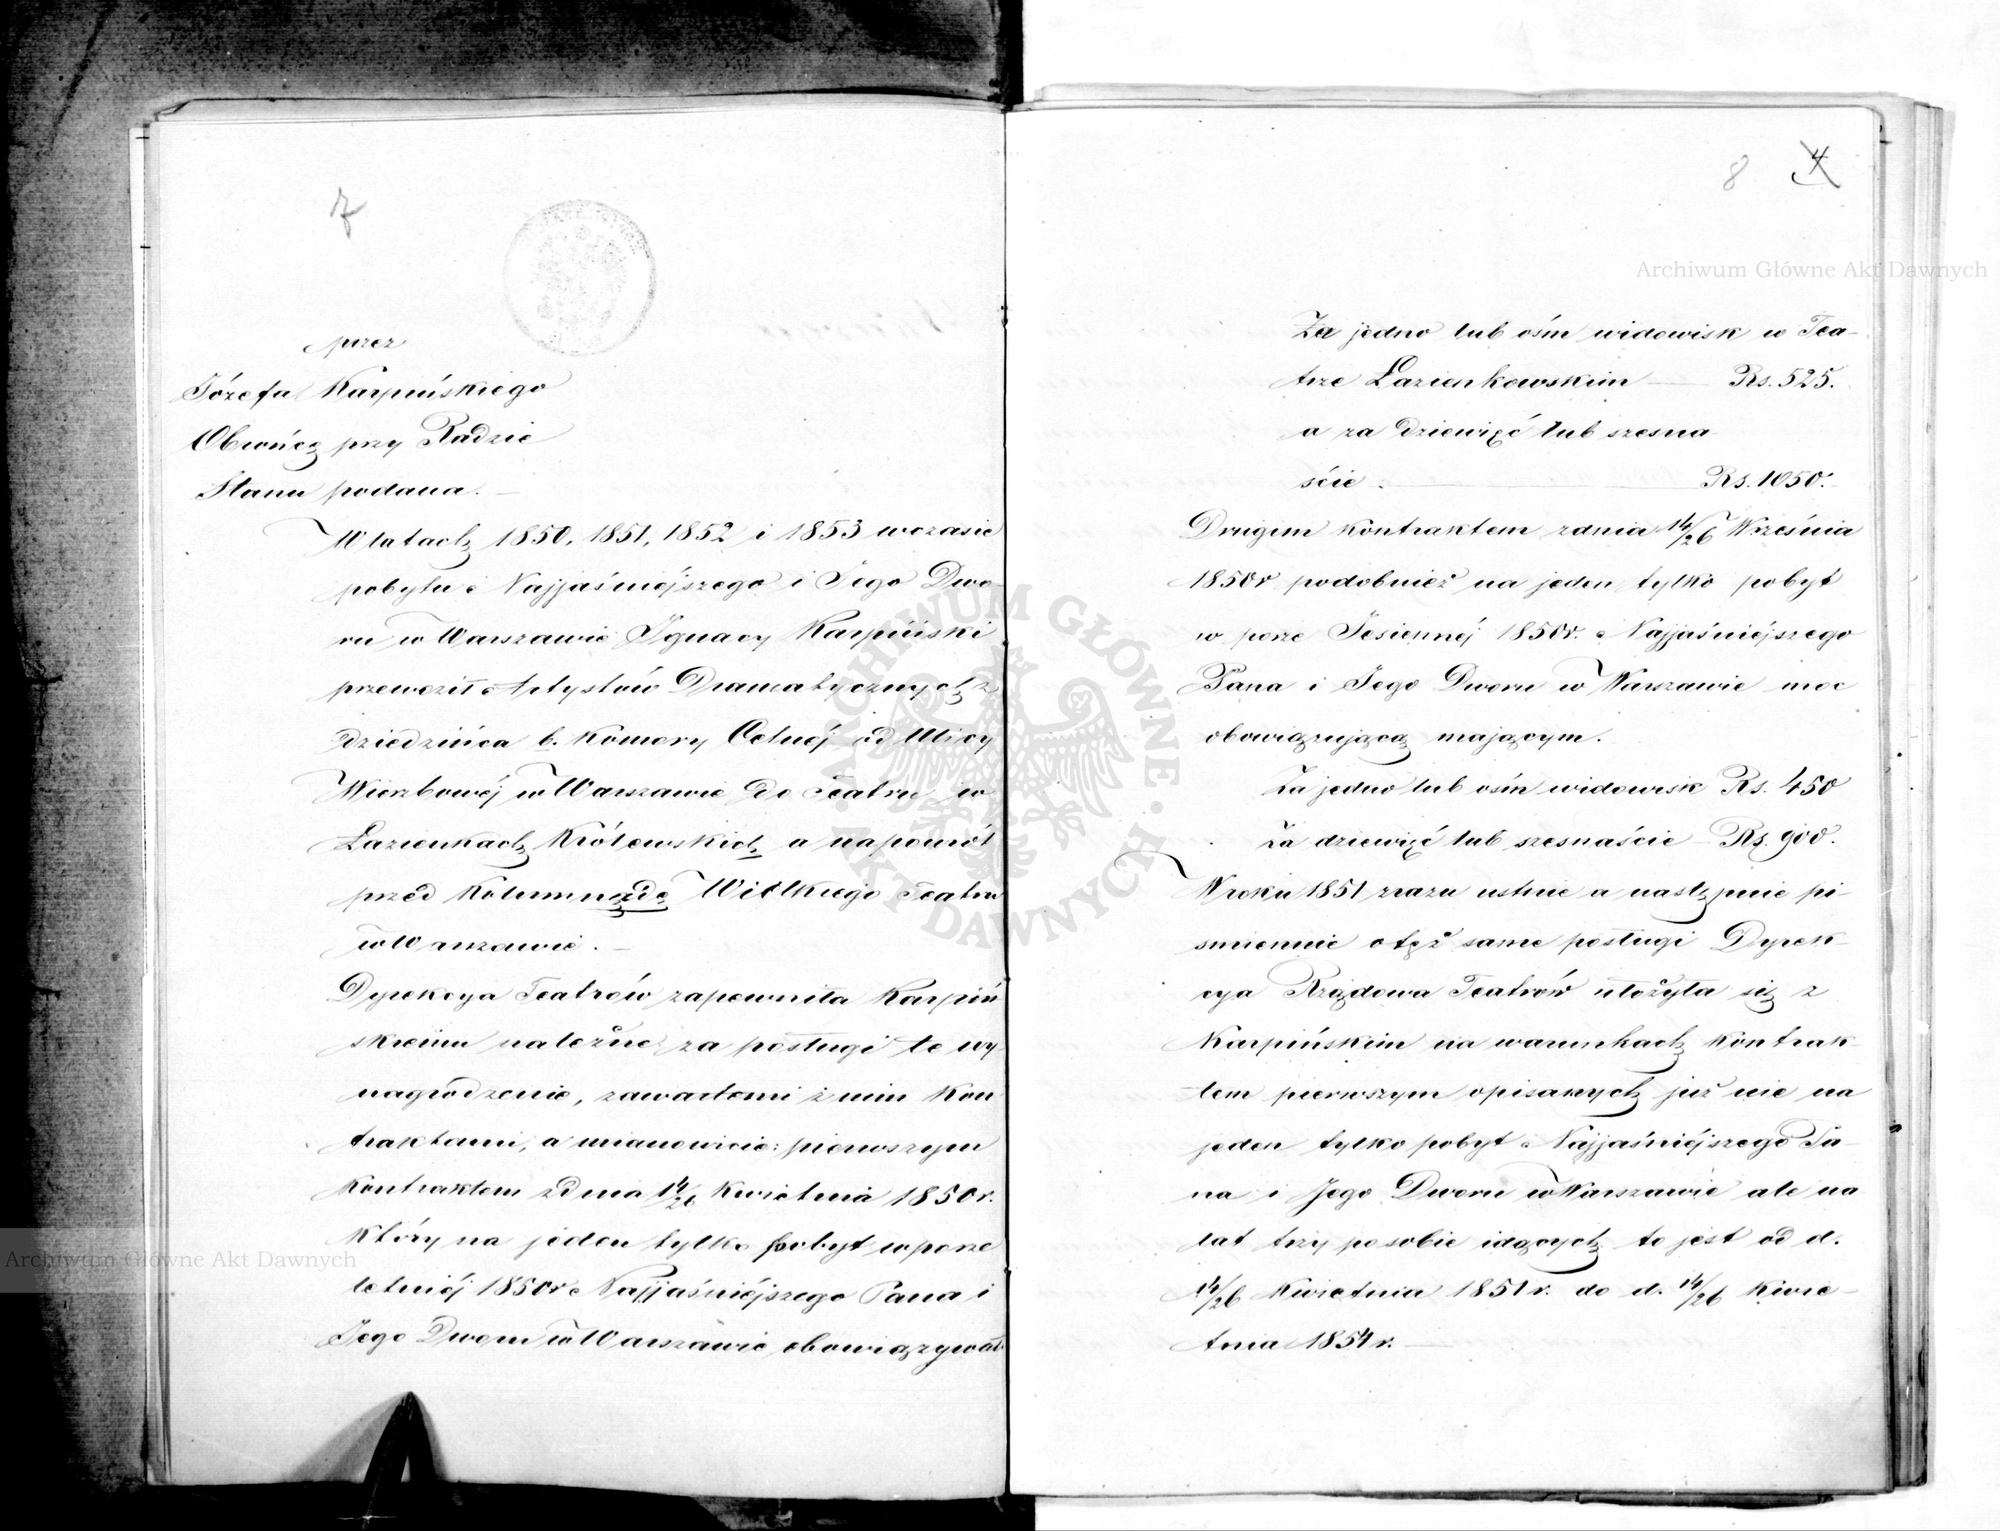 7
przez
Józefa Karpińskiego
Obrońcę przy Radzie
Stanu podana. —
W latach 1850, 1851, 1852 i 1853 wczasie
pobytu Najjaśniéjszego i Jego Dwo-
ru w Warszawie Ignacy Karpiński
przewoził Artystów Dramatycznych z
dziedzińca b. Komory Celnéj od Ulicy
Wierzbowéj w Warszawie do Teatru w
Łazienkach Królewskich a napowrót
przed Kolumnadę Wielkiego Teatru
w Warszawie. —
Dyrekcya Teatrów zapewniła Karpiń
skiemu należne za posługi te wy-
nagrodzenie, zawartemi z nim Kon
traktami, a mianowicie: pierwszym
Kontraktem zdnia 14/26 Kwietnia 1850r.
który na jeden tylko pobyt w porze
letniéj 1850r Najjaśniéjszego Pana i
Jego Dworu w Warszawie obowiązywał
8 4
Za jedno lub ośm widowisk w Tea-
trze Łazienkowskim — Rs. 525.
a za dziewięć lub szesna
ście — Rs. 1050.
Drugim kontraktem zdnia 14/26 Września
1850r podobnież na jeden tylko pobyt
w porze Jesiennéj 1850r. Najjaśniéjszego
Pana i Jego Dworu w Warszawie moc
obowiązującą mającym.
Za jedno lub ośm widowisk Rs. 450
za dziewięć lub szesnaście Rs. 900.
W roku 1851 zrazu ustnie a następnie pi-
smiennie o też same posługi Dyrek-
cya Rządowa Teatrów ułożyła się z
Karpińskim na warunkach kontrak-
tem pierwszym opisanych już nie na
jeden tylko pobyt Najjaśniéjszego Pa-
na i Jego Dworu w Warszawie ale na
lat trzy po sobie idących to jest od d.
14/26 Kwietnia 1851r. do d. 14/26 Kwie-
tnia 1854r. —
Archiwum Główne Akt Dawnych
Archiwum Główne Akt Dawnych
ARCHIWUM GŁÓWNE · AKT DAWNYCH ·